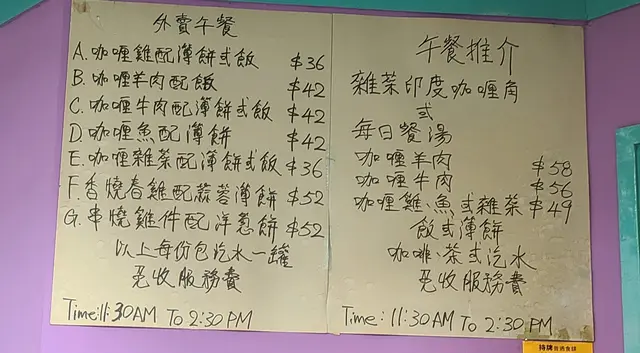 外賣午餐
A. 咖喱雞配薄餅或飯 $36
B. 咖喱羊肉配飯 $42
C. 咖喱牛肉配薄餅或飯 $42
D. 咖喱魚配薄餅 $42
E. 咖喱雜菜配薄餅或飯 $36
F. 香燒春雞配蒜蓉薄餅 $52
G. 串燒雞件配洋蔥餅 $52
以上每份包汽水一罐
免收服務費
Time: 11:30AM To 2:30 PM
午餐推介
雜菜印度咖喱角
或
每日餐湯
咖喱羊肉 $58
咖喱牛肉 $56
咖喱雞、魚或雜菜 $49
飯或薄餅
咖啡、茶或汽水
免收服務費
Time: 11:30AM To 2:30 PM
持牌